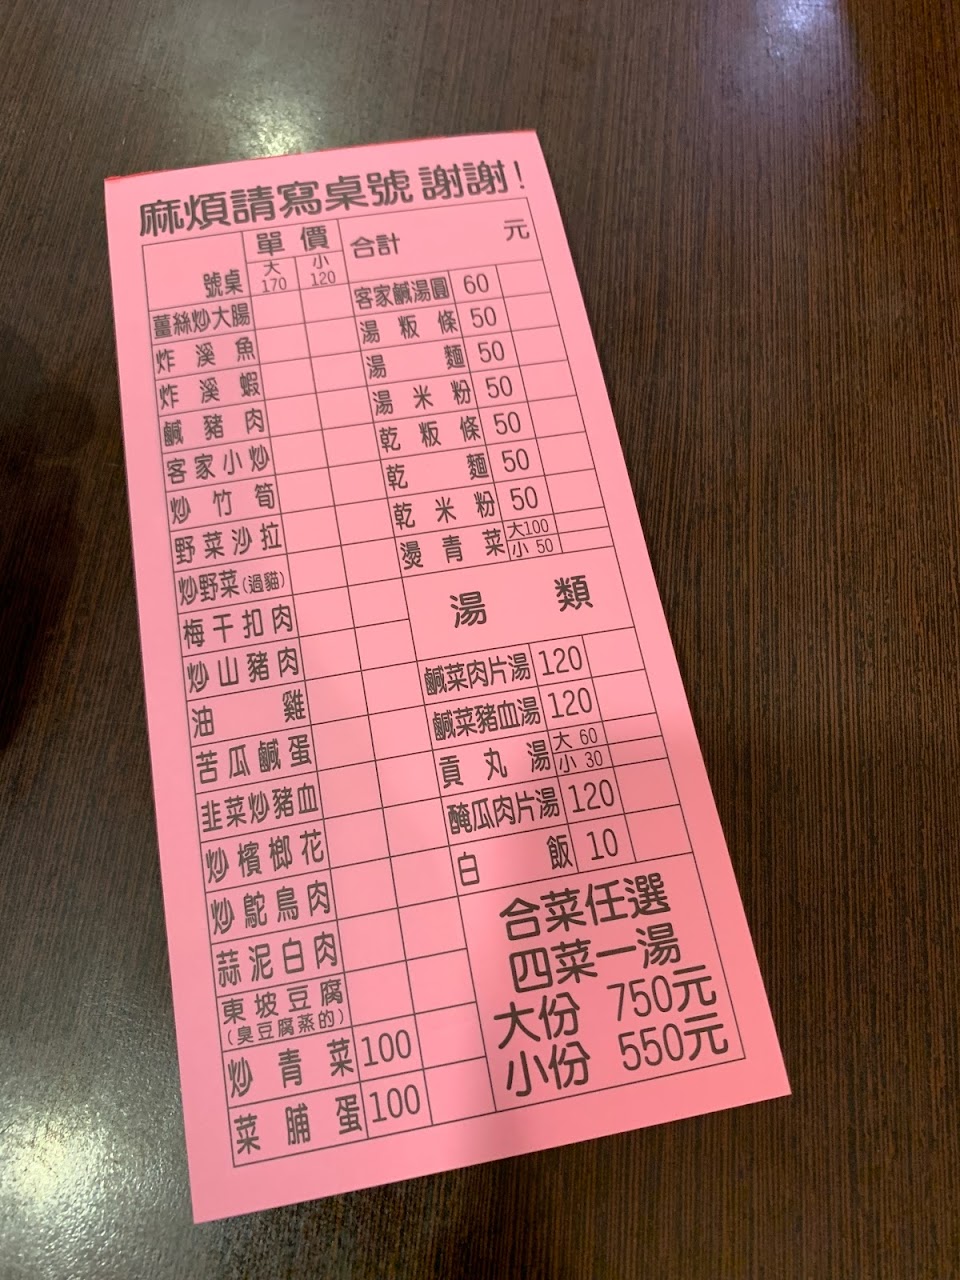 麻煩請寫桌號 謝謝！
號桌
單價
大 170
小 120
合計 元
薑絲炒大腸
炸溪魚
炸溪蝦
鹹豬肉
客家小炒
炒竹筍
野菜沙拉
炒野菜(過貓)
梅干扣肉
炒山豬肉
油雞
苦瓜鹹蛋
韭菜炒豬血
炒檳榔花
炒鴕鳥肉
蒜泥白肉
東坡豆腐
(臭豆腐蒸的)
炒青菜 100
菜脯蛋 100
客家鹹湯圓 60
湯粄條 50
湯麵 50
湯米粉 50
乾粄條 50
乾麵 50
乾米粉 50
燙青菜 大100 小 50
湯類
鹹菜肉片湯 120
鹹菜豬血湯 120
貢丸湯 大 60 小 30
醃瓜肉片湯 120
白飯 10
合菜任選
四菜一湯
大份 750元
小份 550元